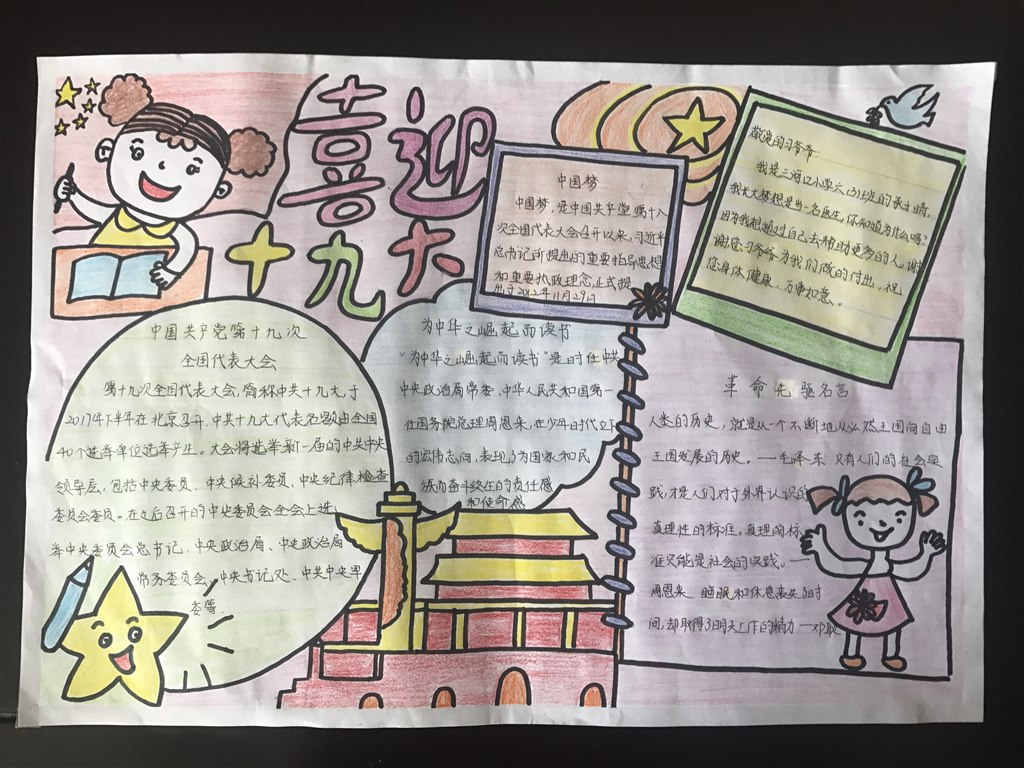 喜迎
十九大
中国共产党第十九次
全国代表大会
第十九次全国代表大会,简称中共十九大,于
2017年下半年在北京召开.中共十九大代表名额由全国
40个选举单位选举产生。大会将选举新一届的中共中央
领导层,包括中央委员、中央候补委员、中央纪律检查
委员会委员。在之后召开的中央委员会全会上选
举中央委员会总书记、中央政治局、中央政治局
常务委员会,中央书记处、中共中央军
委等.
为中华之崛起而读书
"为中华之崛起而读书"是时任中共
中央政治局常委、中华人民共和国第一
任国务院总理周恩来,在少年时代立下
的宏伟志向,表现了为国家和民
族而奋斗终生的责任感
和使命感
中国梦
中国梦,是中国共产党第十八
次全国代表大会召开以来,习近平
总书记所提出的重要指导思想
和重要执政理念,正式提
出于2012年11月29日
敬爱的习爷爷:
我是三河口小学六(3)班的
我长大梦想是当一名医生,你知道为什么吗?
因为我想通过自己去帮助更多的人。谢
谢您习爷爷为我们做的付出,祝
您身体健康,万事如意。
革命先驱名言
人类的历史,就是从一个不断地从必然王国向自由
王国发展的历史。——毛泽东 只有人们的社会实
践,才是人们对于外界认识的
真理性的标准。真理的标
准只能是社会的实践。——
周恩来 睡眠和休息丧失了时
间,却取得了明天工作的精力—邓